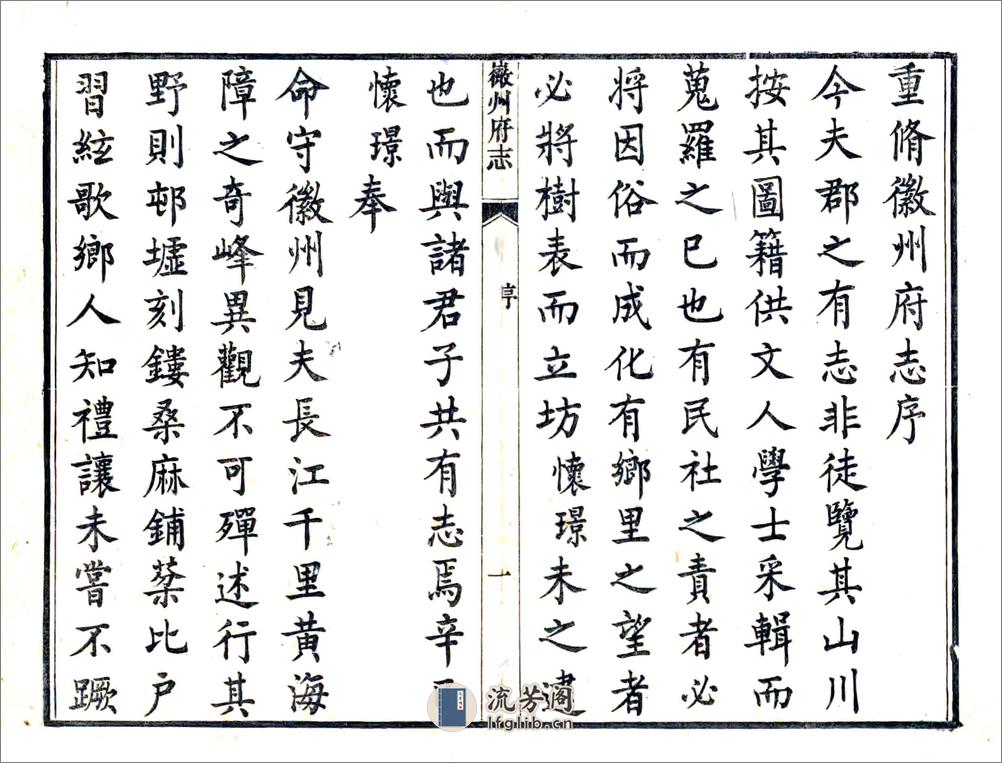 重脩徽州府志序
今夫郡之有志非徒覽其山川
按其圖籍供文人學士采輯而
蒐羅之已也有民社之責者必
將因俗而成化有鄉里之望者
必將樹表而立坊懷璟未之逮
徽州府志
序
一
也而與諸君子共有志焉辛
懷璟奉
命守徽州見夫長江千里黃海
障之奇峰異觀不可殫述行其
野則邨墟刻鏤桑麻鋪棻比戶
習絃歌鄉人知禮讓未嘗不蹶
流芳阁
lfglib.cn